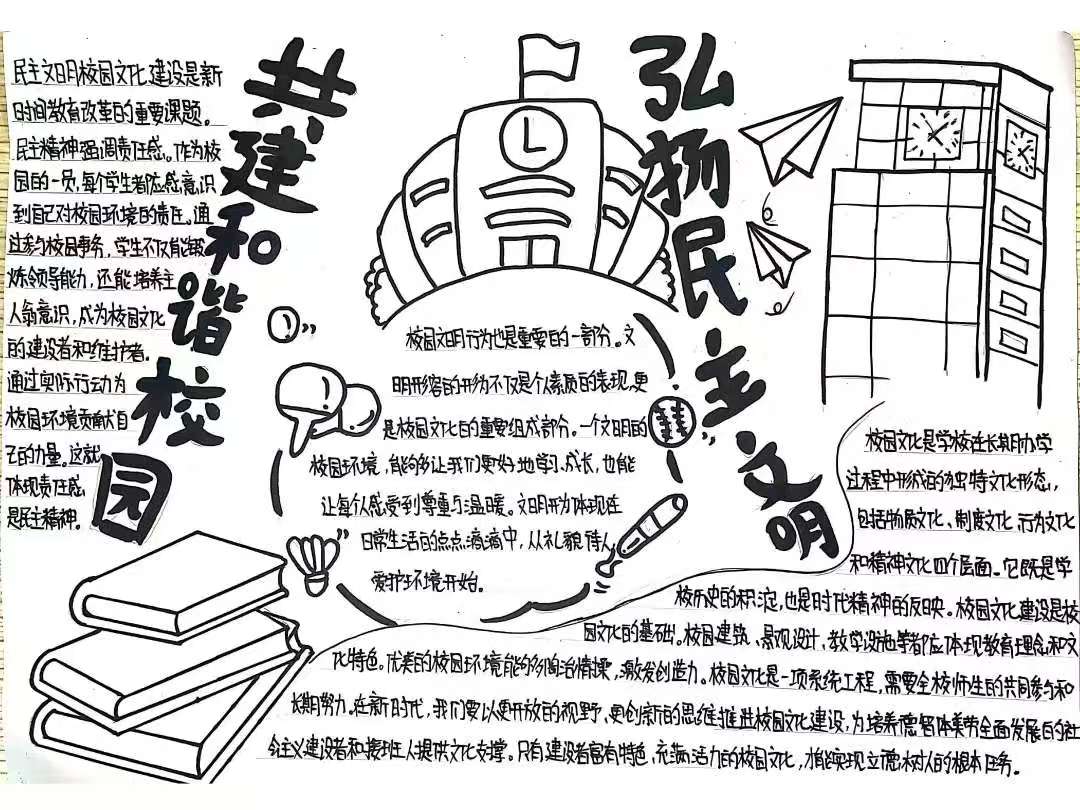 共建和谐校园
弘扬民主文明
民主文明校园文化建设是新
时间教育改革的重要课题。
民主精神强调责任感。作为校
园的一员,每个学生都应感意识
到自己对校园环境的责任。通
过参与校园事务,学生不仅能锻
炼领导能力,还能培养主
人翁意识,成为校园文化
的建设者和维护者。
通过实际行动为
校园环境贡献自
己的力量。这就
体现责任感,
是民主精神。
校园文明行为也是重要的一部分。文
明形容的行为不仅是个人素质的表现,更
是校园文化的重要组成部分。一个文明的
校园环境,能够让我们更好地学习、成长,也能
让每个人感受到尊重与温暖。文明行为体现在
日常生活的点点滴滴中,从礼貌待人
爱护环境开始。
校园文化是学校在长期办学
过程中形成的独特文化形态,
包括物质文化、制度文化、行为文化
和精神文化四个层面。它既是学
校历史的积淀,也是时代精神的反映。校园文化建设是校
园文化的基础。校园建筑、景观设计、教学设施等都应体现教育理念和文
化特色。优美的校园环境能够陶冶情操,激发创造力。校园文化是一项系统工程,需要全校师生的共同参与和
长期努力。在新时代,我们要以更开放的视野,更创新的思维推进校园文化建设,为培养德智体美劳全面发展的社
会主义建设者和接班人提供文化支撑。只有建设者富有特色,充满活力的校园文化,才能实现立德树人的根本任务。